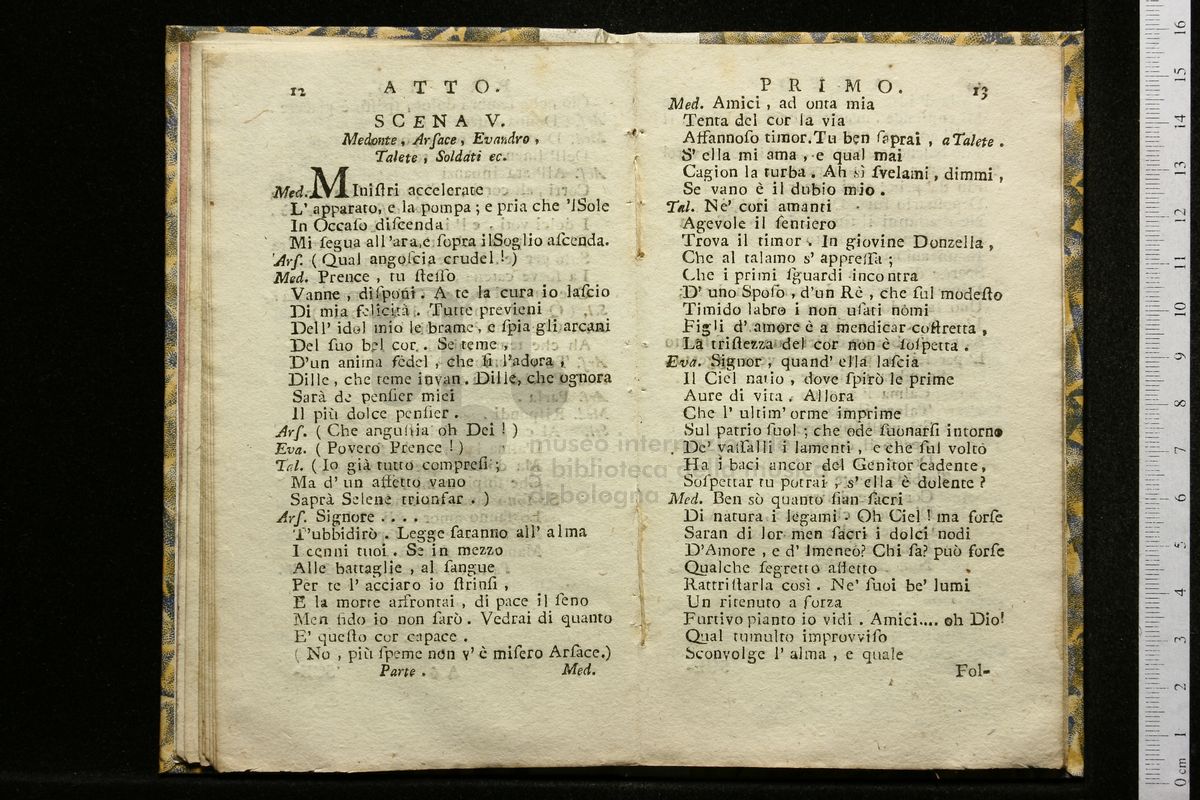 12 ATTO.
SCENA V.
Medonte, Arſace, Evandro,
Talete, Soldati ec.
Med. MIniſtri accelerate
L' apparato, e la pompa; e pria che 'lSole
In Occaſo diſcenda
Mi ſegua all'ara,e ſopra ilSoglio aſcenda.
Arſ. (Qual angoſcia crudel!)
Med. Prence, tu ſteſſo
Vanne, diſponi. A te la cura io laſcio
Di mia felicità. Tutte previeni
Dell' idol mio le brame, e ſpia gli arcani
Del ſuo bel cor. Se teme,
D'un anima fedel, che ſi l'adora,
Dille, che teme invan. Dille, che ognora
Sarà de penſier miei
Il più dolce penſier.
Arſ. (Che anguſtia oh Dei!)
Eva. (Povero Prence!)
Tal. (Io già tutto compreſi;
Ma d' un affetto vano
Saprà Selene trionfar.)
Arſ. Signore....
T'ubbidirò. Legge ſaranno all' alma
I cenni tuoi. Se in mezzo
Alle battaglie, al ſangue
Per te l' acciaro io ſtrinſi,
E la morte affrontai, di pace il ſeno
Men fido io non ſarò. Vedrai di quanto
E' queſto cor capace.
(No, più ſpeme non v'è miſero Arſace.)
Parte. Med.
PRIMO. 13
Med. Amici, ad onta mia
Tenta del cor la via
Affannoſo timor.Tu ben ſaprai, a Talete.
S' ella mi ama, e qual mai
Cagion la turba. Ah sì ſvelami, dimmi,
Se vano è il dubio mio.
Tal. Ne' cori amanti
Agevole il ſentiero
Trova il timor. In giovine Donzella,
Che al talamo s' appreſſa;
Che i primi ſguardi incontra
D' uno Spoſo, d'un Rè, che ſul modeſto
Timido labro i non uſati nomi
Figli d' amore è a mendicar coſtretta,
La triſtezza del cor non è ſoſpetta.
Eva. Signor, quand' ella laſcia
Il Ciel natio, dove ſpirò le prime
Aure di vita. Allora
Che l' ultim' orme imprime
Sul patrio ſuol; che ode ſuonarſi intorno
De' vaſſalli i lamenti, e che ſul volto
Ha i baci ancor del Genitor cadente,
Soſpettar tu potrai, s' ella è dolente?
Med. Ben sò quanto ſian ſacri
Di natura i legami? Oh Ciel! ma forſe
Saran di lor men ſacri i dolci nodi
D'Amore, e d' Imeneo? Chi ſa? può forſe
Qualche ſegretto affetto
Rattriſtarla così. Ne' ſuoi be' lumi
Un ritenuto a forza
Furtivo pianto io vidi. Amici.... oh Dio!
Qual tumulto improvviſo
Sconvolge l' alma, e quale
Fol-
museo internazionale
e biblioteca della musica
di bologna
0 cm 1 2 3 4 5 6 7 8 9 10 11 12 13 14 15 16